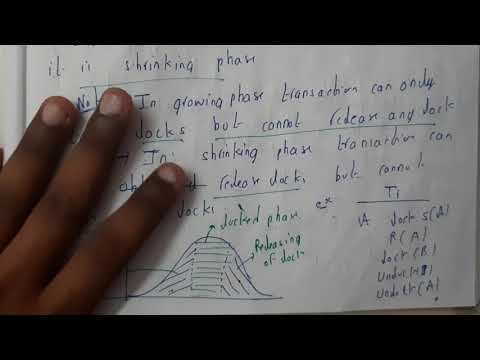 it is shrinking phase
No In growing phase transaction can only
locks but cannot release any lock
→ In shrinking phase transaction can
release locks but cannot
locks
ex T1
locked phase
A lock s(A)
Releasing of lock
R(A)
lock (B)
(A)